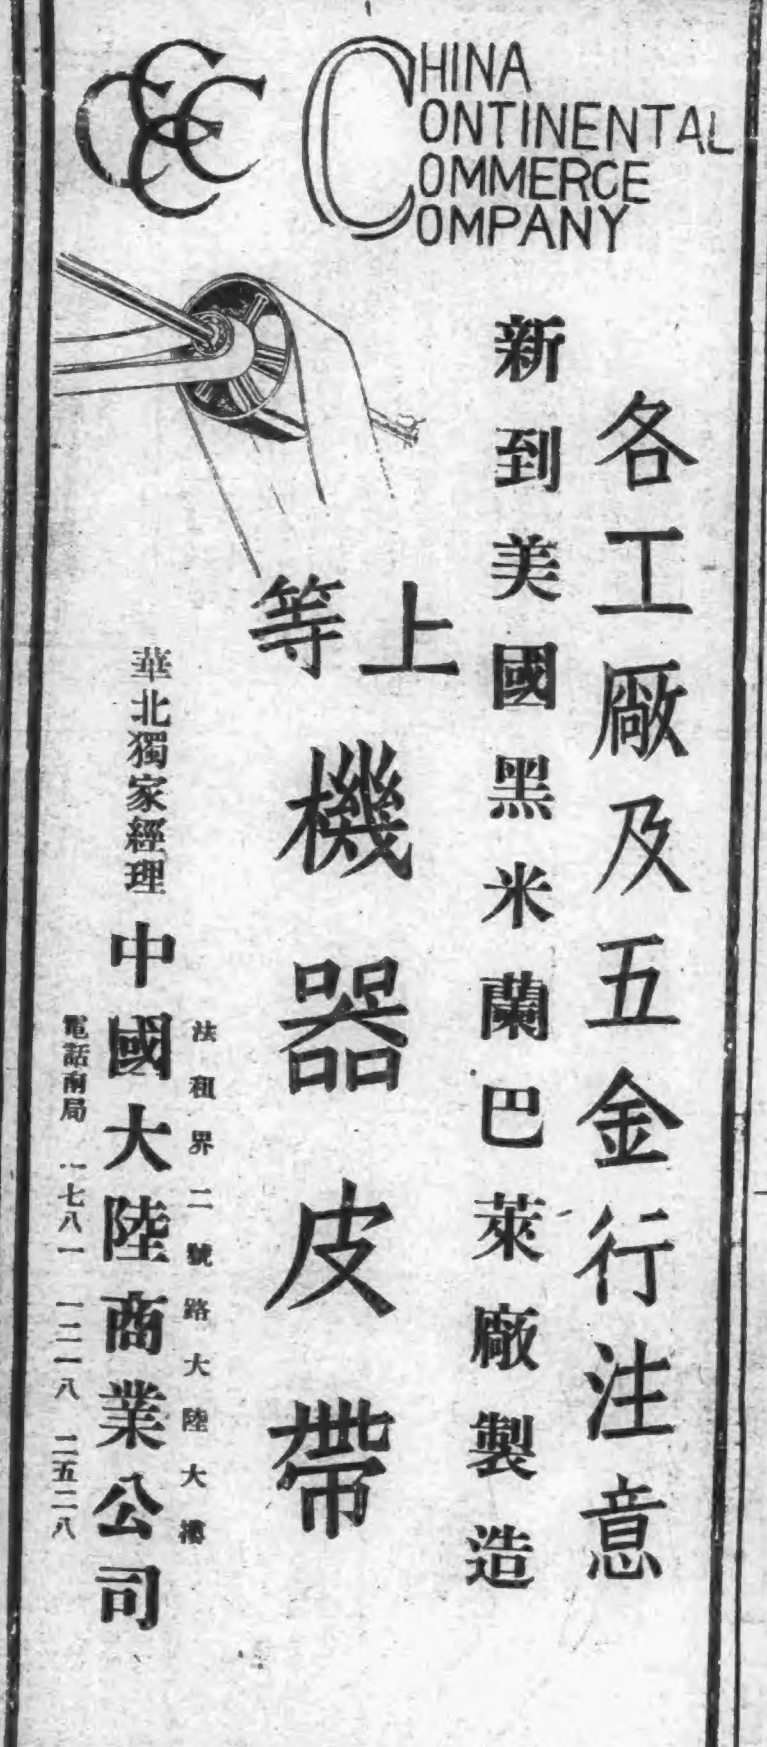 CHINA
CONTINENTAL
COMMERCE
COMPANY
各工廠及五金行注意
新到美國黑米蘭巴萊廠製造
上等
機器皮帶
華北獨家經理
中國大陸商業公司
法租界二號路大陸大樓
電話南局 一七八一 一二一八 二五二八